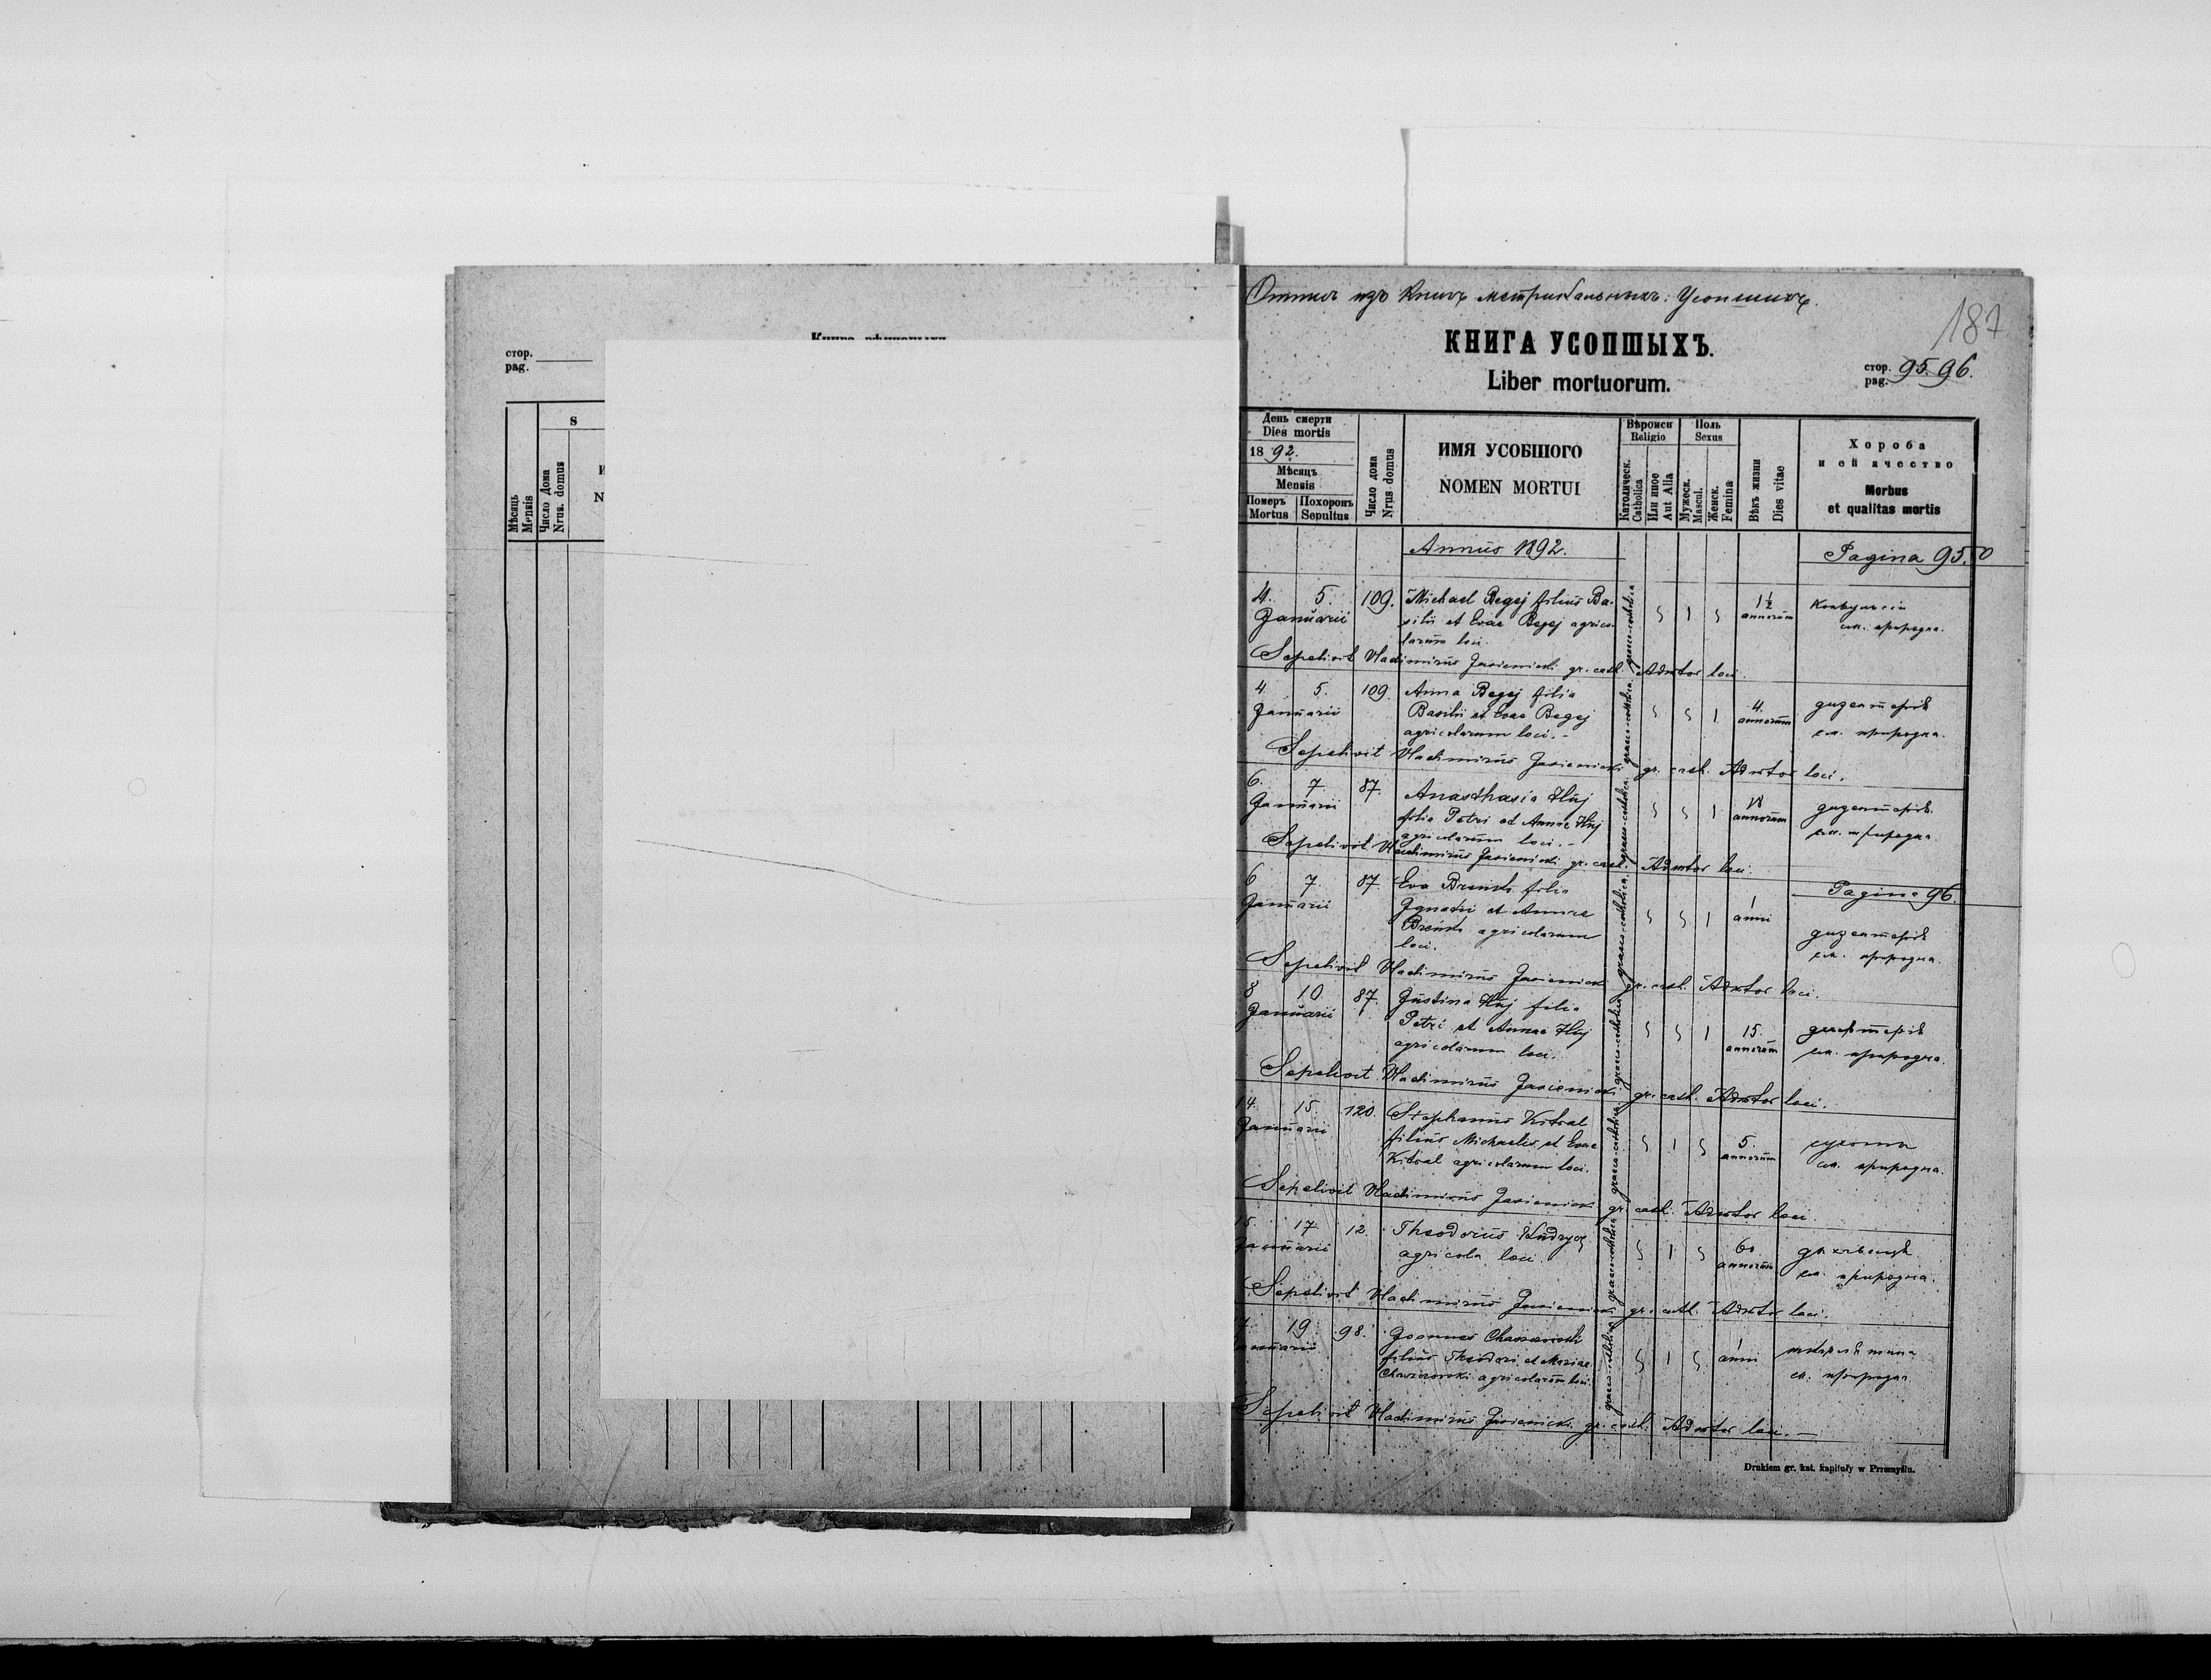 стор.
pag.
Мѣсяць
Mensis
Число Дома
Nrus. domus
S
Отпись изъ Книгъ метрикальныхъ: Усопшихъ.
187
КНИГА УСОПШЫХЪ.
Liber mortuorum.
стор.
pag. 95. 96.
День смерти
Dies mortis
1892.
Мѣсяцъ
Mensis
Померъ Похоронъ
Mortus Sepultus
Число дома
Nrus domus
ИМЯ УСОБШОГО
NOMEN MORTUI
Вѣроиси
Religio
Католическ.
Catholica
Или иное
Aut Alia
Поль
Sexus
Мужеск.
Mascul.
Женск.
Femina
Вѣкъ жизни
Dies vitae
Хороба
и ей ячество
Morbus
et qualitas mortis
Annus 1892. Pagina 95.
4. 5. 109. Michael Begej filius Ba-
Januarii silii et Evae Begej agrico-
larum loci.
graeco-catholica 1 1½ annorum
см. природна.
Sepelivit Vladimirus Jasienicki gr. cath. Admtor loci.
4 5. 109. Anna Begej filia
Januarii Basilii et Evae Begej
agricolarum loci.-
graeco-catholica 1 4. annorum
дизентерія
см. природна.
Sepelivit Vladimirus Jasienicki gr. cath. Admtor loci.
6. 7. 87. Anasthasia Huj
Januarii filia Petri et Annae Huj
agricolarum loci.-
graeco-catholica 1 18 annorum
дизентерія.
см. природна.
Sepelivit Vladimirus Jasienicki gr. cath. Admtor loci.
Pagina 96.
6 7. 87. Eva filia
Januarii Ignatii et Annae
agricolarum
loci.
graeco-catholica 1 1 anni
дизентерія
см. природна.
Sepelivit Vladimirus Jasienicki gr. cath. Admtor loci.
8 10 87. Justina Huj filia
Januarii Petri et Annae Huj
agricolarum loci.
graeco-catholica 1 15. annorum
см. природна.
Sepelivit Vladimirus Jasienicki gr. cath. Admtor loci.
14. 15. 120. Stephanus Kitral
Januarii filius Michaelis et Evae
Kitral agricolarum loci.
graeco-catholica 1 5. annorum
сухота
см. природна.
Sepelivit Vladimirus Jasienicki gr. cath. Admtor loci.
15. 17. 12. Theodorus
Januarii agricola loci
graeco-catholica 1 60 annorum
см. природна.
Sepelivit Vladimirus Jasienicki gr. cath. Admtor loci.
19. 98. Joannes
Januarii filius Theodori et Mariae
agricolarum loci.
graeco-catholica 1 1 anni
см. природна
Sepelivit Vladimirus Jasienicki gr. cath. Admtor loci.—
Drukiem gr. kat. kapituły w Przemyślu.